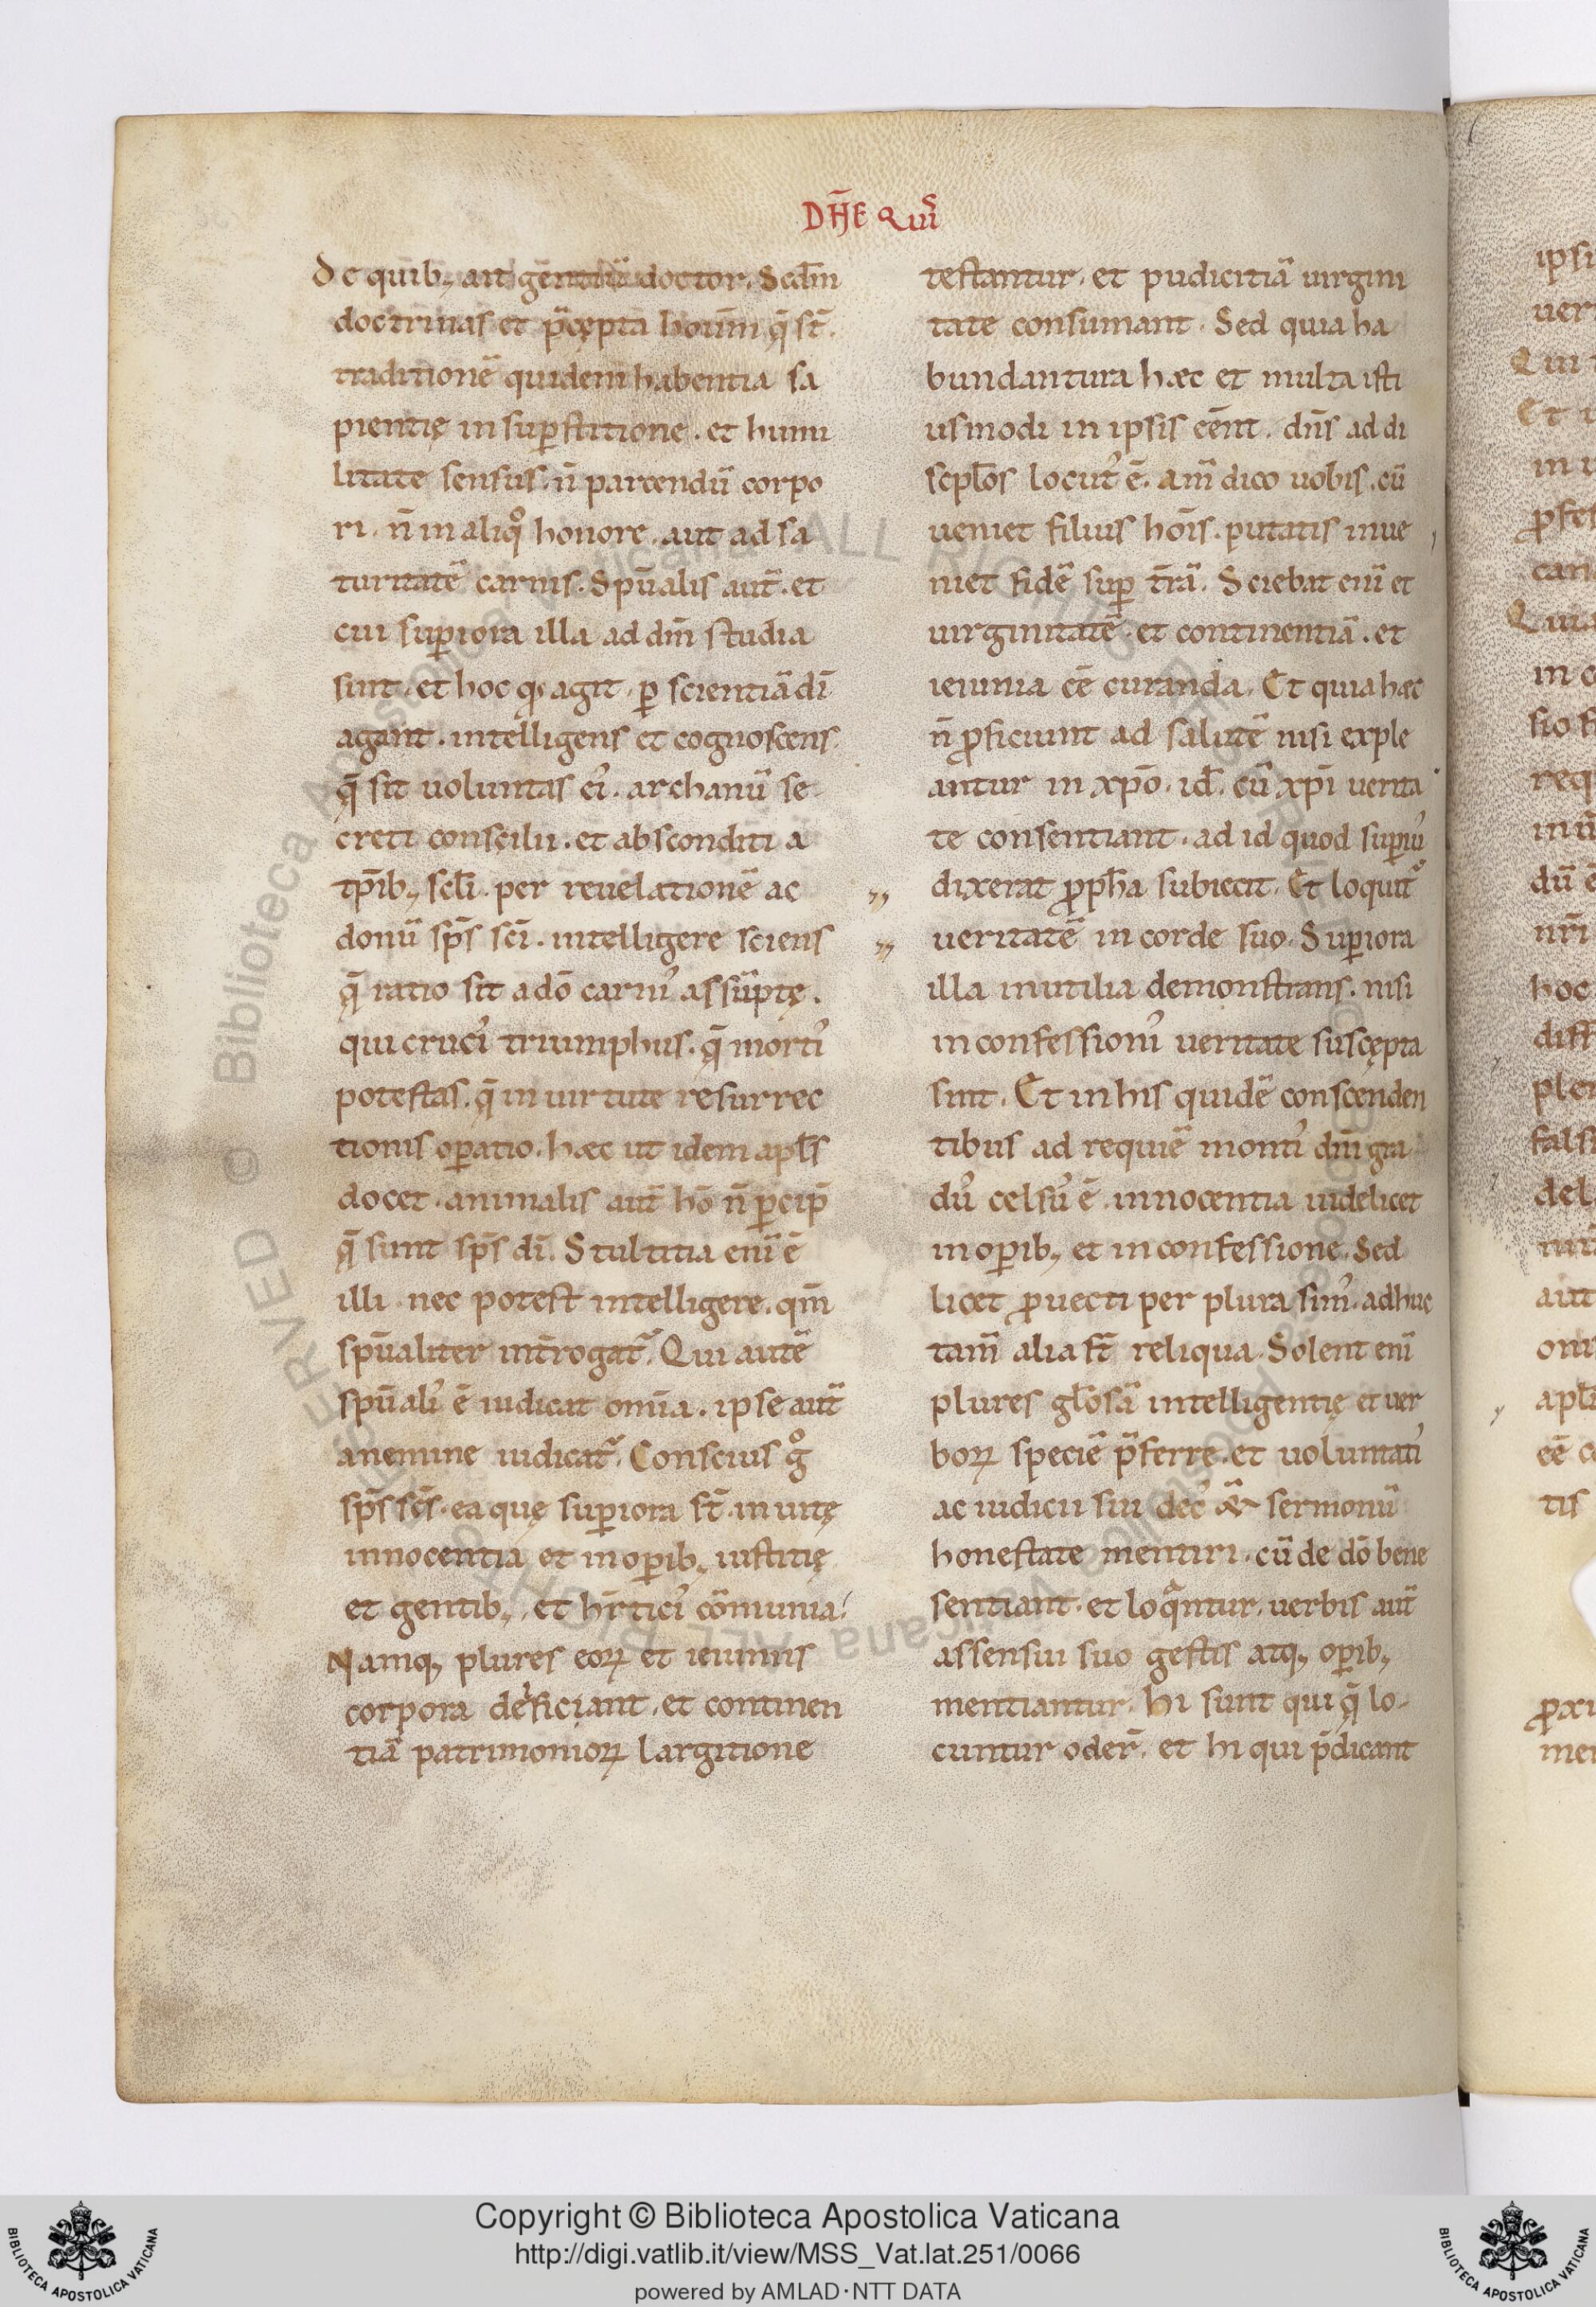 DN̄E Quıs
De quib; ait gentiū doctor. Scdm̄
doctrinas et p̄cępta houm̄ q̄ st̄.
traditionē quidem habentia sa
pientię in suꝑstitione. et humi
litate sensus. n̄ parcendū corpo
ri. n̄ in aliqͦ honore. aut ad sa
turitatē carnis. Spūalis aut̄. et
cui suꝑiora illa ad dm̄ studia
sint. et hoc qđ agit. ꝑ scientiā dī
agant. intelligens et cognoscens
q̄ sit uoluntas ei᾽. archanū se
creti conscilii. et absconditi a
tp̄ib; scl̄i. per reuelationē ac
donū sp̄s sc̄i. intelligere sciens
q̄ ratio sit a dō carni᾽ assūptę.
qui cruci᾽ triumphus. q̄ morti᾽
potestas. q̄ in uirtute resurrec
tionis oꝑatio. hæc ut idem apl̄s
docet. animalis aut̄ hō n̄ ꝑcip̄
q̄ sunt sp̄s dī. Stultitia enī ē
illi nec potest intelligere. qm̄
spūaliter int̄rogat᷑. Qui autē
spūali᾽ ē iudicat om̄ia. ipse aut̄
a nemine iudicat᷑. Conscius gͦ
sp̄s sc̄s. ea quę suꝑiora st̄. in uitę
innocentia et in oꝑib; iustitię
et gentib;. et hr̄tici᾽ cōmunia.
Namq; plures eoꝝ et ieiuniis
corpora deficiant. et continen
tiā patrimonioꝝ largitione
testantur. et pudicitiā uirgini
tate consumant. Sed quia ha
bundantura hæc et multa isti
usmodi in ipsis eēnt. dn̄s ad di
scpl̄os locut᾽ ē. Am̄ dico uobis. cū
ueniet filius hōis. putatis inue
niet fidē suꝑ t̄rā. Sciebat enī et
uirginitatē. et continentiā. et
ieiunia eē curanda. Et quia hæc
n̄ ꝓficiunt ad salutē nisi exple
antur in xp̄o. id ̄. cū xp̄i uerita
te consentiant. ad id quod suꝑiu᾽
dixerat ꝓph̄a subiecit. Et loquit᷑
ueritatē in corde suo. Suꝑiora
illa inutilia demonstrans. nisi
in confessioni᾽ ueritate suscępta
sint. Et in his quidē conscenden
tibus ad requiē monti᾽ dn̄i gra
du᾽ celsu᾽ ē. innocentia uidelicet
in oꝑib; et in confessione. Sed
licet ꝓuecti per plura sim᾽. adhuc
tam̄ alia st̄ reliqua. Solent enī
plures gl̄osā intelligentię et uer
boꝝ speciē p̄ferre. et uoluntati᾽
ac iudicii sui sermonū
honestate mentiri. cū de dō bene
sentiant. et loq̄ntur. uerbis aut̄
assensui suo gestis atq; oꝑib;
mentiantur. hi sunt qui q̄ lo-
cuntur oder̄. et hi qui p̄dicant
Copyright © Biblioteca Apostolica Vaticana
http://digi.vatlib.it/view/MSS_Vat.lat.251/0066
powered by AMLAD·NTT DATA
BIBLIOTECA APOSTOLICA VATICANA
BIBLIOTECA APOSTOLICA VATICANA